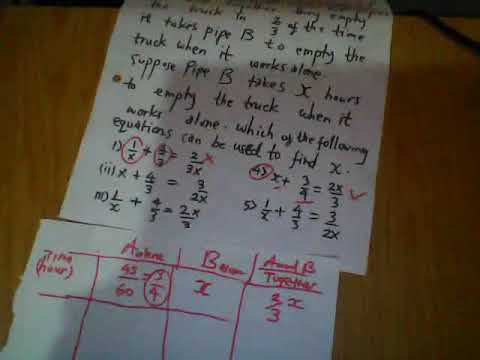 the truck in 2/3 of the time
it takes pipe B to empty the
truck when it works alone.
Suppose Pipe B takes x hours
to empty the truck when it
works alone. which of the following
equations can be used to find x.
i) 1/x + 3/3 = 2/3x x
(ii) x + 4/3 = 3/2x
iii) 1/x + 4/3 = 2x/3
4) x + 3/4 = 2x/3 ✓
5) 1/x + 4/3 = 3/2x
Time (hour)
A alone
45/60 = 3/4
B alone
x
A and B Together
2/3 x